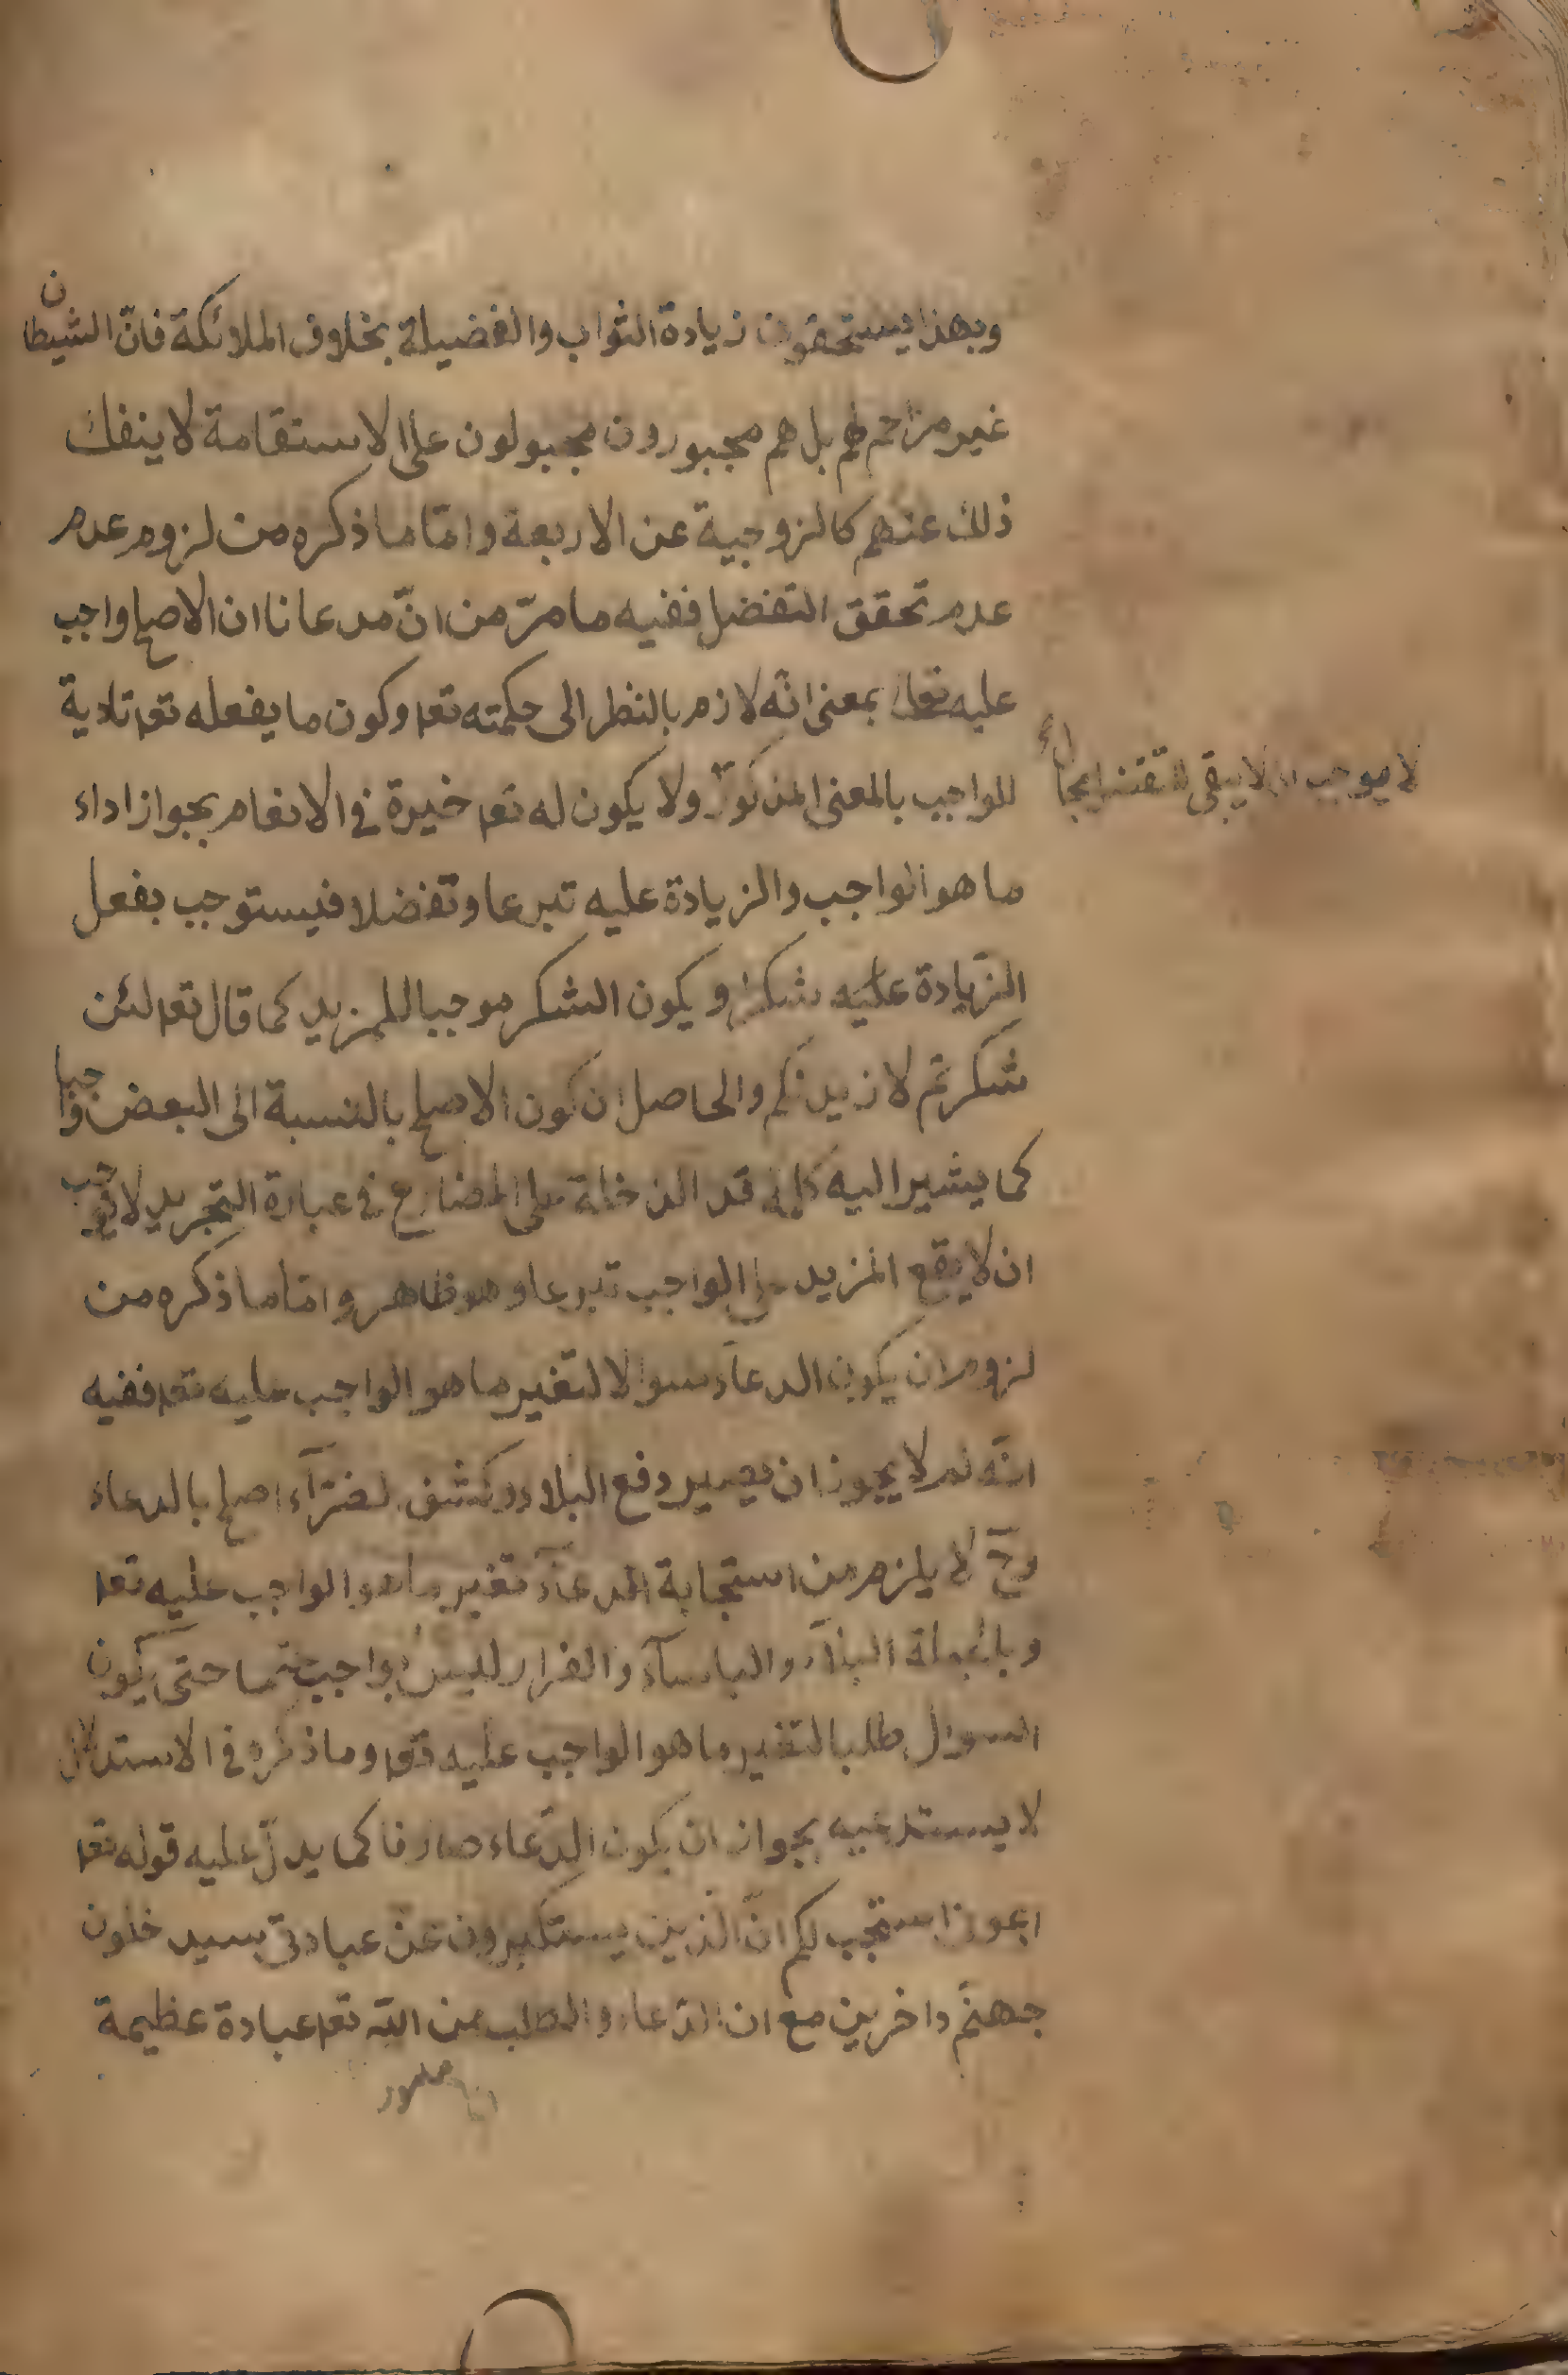 وبهذا يستحقون زيادة الثواب والفضيلة بخلاف الملائكة فانّ الشيطان
غير مزاحم لهم بل هم مجبورون مجبولون على الاستقامة لا ينفك
ذلك عنهم كالزوجية عن الاربعة وامّا ما ذكره من لزوم عدم
عدم تحقق التفضل ففيه ما مرّ من انّ مدعانا ان الاصلح واجب
عليه تعالى بمعنى انّه لازم بالنظر الى حكمته تعه وكون ما يفعله تعه تادية
للواجب بالمعنى المذكور ولا يكون له تعه خيرة في الانعام بجواز اداء
لا يوجب ان لا يبقى
ما هو الواجب والزيادة عليه تبرعا وتفضلا فيستوجب بفعل
الزّيادة عليه شكرا ويكون الشكر موجبا للمزيد كما قال تعه لئن
شكرتم لازيدنكم والحاصل ان كون الاصلح بالنسبة الى البعض واجبا
كما يشير اليه كلمة قد الداخلة على المضارع في عبارة التجريد لا يوجب
ان لا يقع المزيد على الواجب تبرعا وهو ظاهر وامّا ما ذكره من
لزوم ان يكون الدعاء سوالا لتغير ما هو الواجب عليه تعه ففيه
انّه لم لا يجوز ان يصير دفع البلاء وكشف الضرّآء اصلح بالدعاء
وحّ لا يلزم من استجابة الدعآء تغير ما هو الواجب عليه تعه
وبالجملة البلآء والباسآء والضرار ليس بواجب حتما حتى يكون
السوال طلبا لتغير ما هو الواجب عليه تعه وما ذكره في الاستدلال
لا يستدعيه بجواز ان يكون الدّعاء صارفا كما يدلّ عليه قوله تعه
ادعوني استجب لكم انّ الّذين يستكبرون عن عبادتي سيدخلون
جهنّم داخرين مع ان الدّعاء والطلب من اللّه تعه عبادة عظيمة